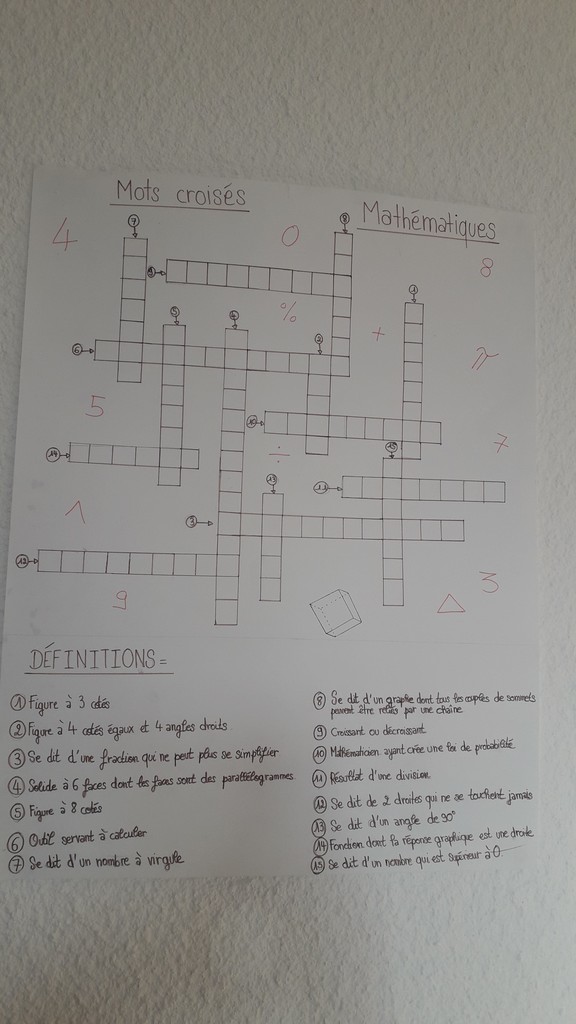 Mots croisés
Mathématiques
7
8
4
0
8
9
1
%
5
4
+
2
6
π
5
10
7
15
14
÷
13
11
1
3
12
9
3
DÉFINITIONS =
1 Figure à 3 cotés
2 Figure à 4 cotés égaux et 4 angles droits
3 Se dit d'une fraction qui ne peut plus se simplifier
4 Solide à 6 faces dont les faces sont des parallélogrammes
5 Figure à 8 cotés
6 Outil servant à calculer
7 Se dit d'un nombre à virgule
8 Se dit d'un graphe dont tous les couples de sommets
peuvent être reliés par une chaîne
9 Croissant ou décroissant
10 Mathématicien ayant crée une loi de probabilité
11 Résultat d'une division
12 Se dit de 2 droites qui ne se touchent jamais
13 Se dit d'un angle de 90°
14 Fonction dont la réponse graphique est une droite
15 Se dit d'un nombre qui est supérieur à 0